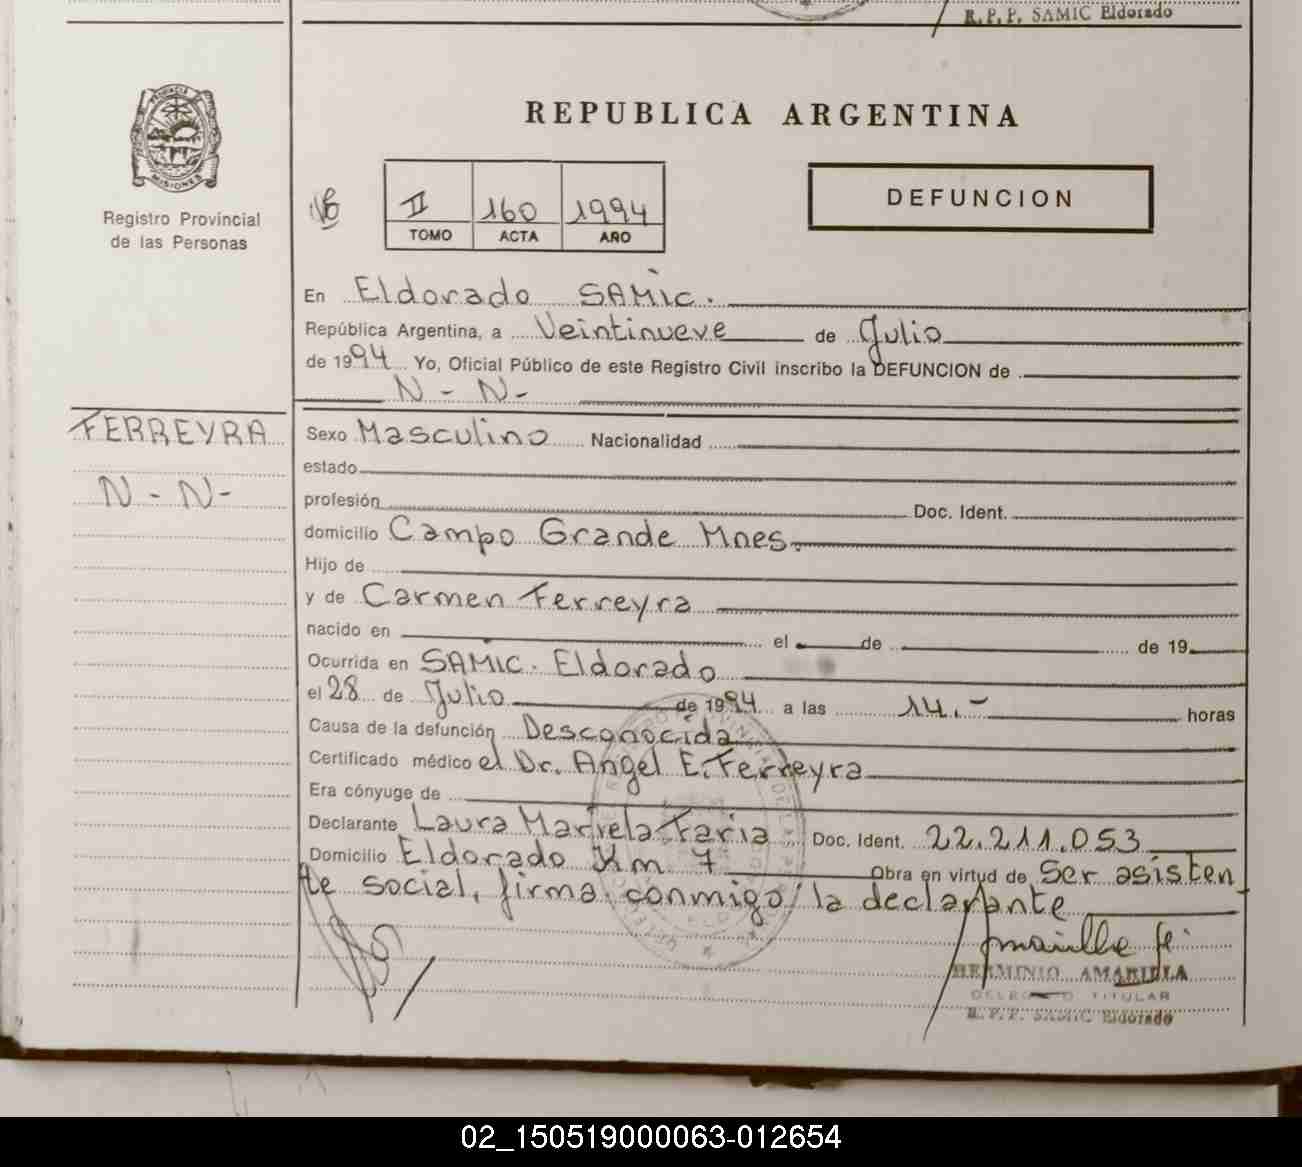 R.P.P. SAMIC Eldorado
PROVINCIA DE
MISIONES
Registro Provincial
de las Personas
REPUBLICA ARGENTINA
II 160 1994
TOMO ACTA AÑO
DEFUNCION
En Eldorado SAMIC.
República Argentina, a Veintinueve de Julio
de 1994 Yo, Oficial Público de este Registro Civil inscribo la DEFUNCION de
N - N-
FERREYRA
N - N-
Sexo Masculino Nacionalidad
estado
profesión Doc. Ident.
domicilio Campo Grande Mnes.
Hijo de
y de Carmen Ferreyra
nacido en el de de 19
Ocurrida en SAMIC. Eldorado
el 28 de Julio de 1994 a las 14.- horas
Causa de la defunción Desconocida
Certificado médico el Dr. Angel E. Ferreyra
Era cónyuge de
Declarante Laura Mariela Faria Doc. Ident. 22.211.053
Domicilio Eldorado Km 7 Obra en virtud de Ser asisten
te social, firma conmigo la declarante
HERMINIO AMARILLA
DELEGADO TITULAR
R.P.P. SAMIC Eldorado
02_150519000063-012654